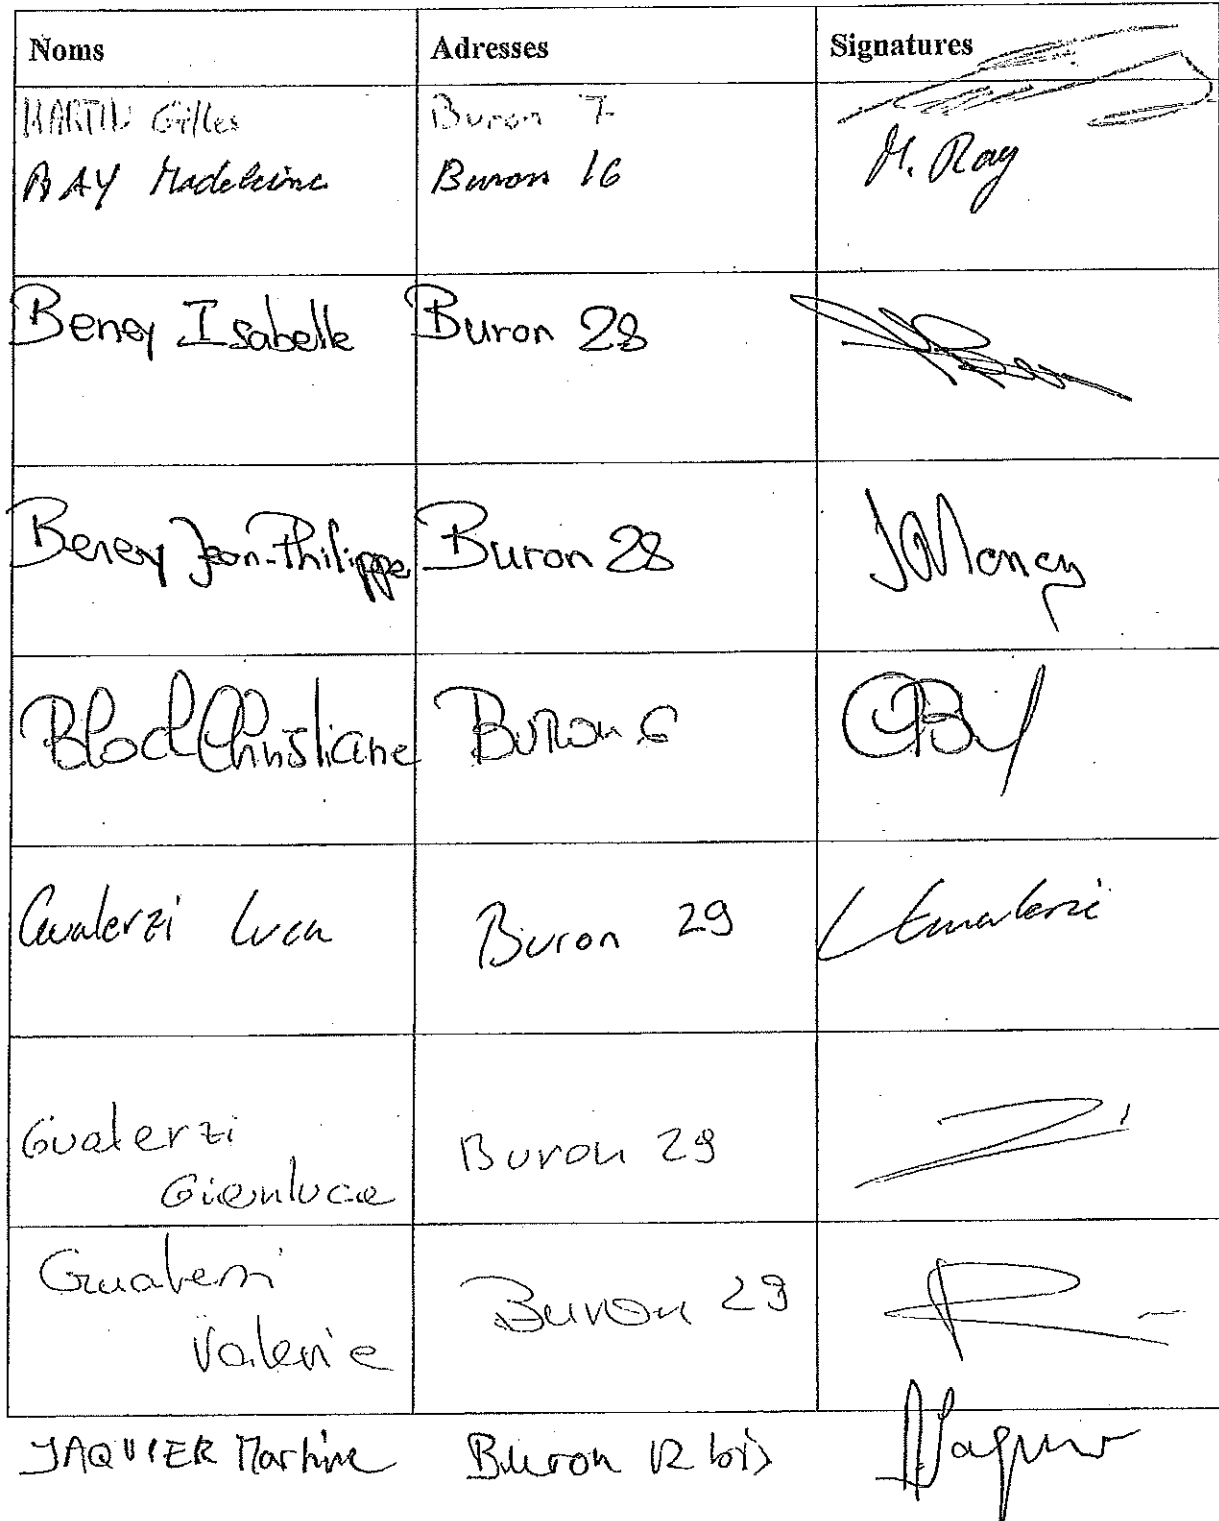 Noms Adresses Signatures
MARTIN Gilles Buron 7
RAY Madeleine Buron 16 M. Ray
Beney Isabelle Buron 28
Beney Jean-Philippe Buron 28
Blod Christiane Buron 6
Gualerzi Luca Buron 29 L Gualerzi
Gualerzi Buron 29
Gianluca
Gualerzi Buron 29
Valerie
JAQUIER Martine Buron 12 bis